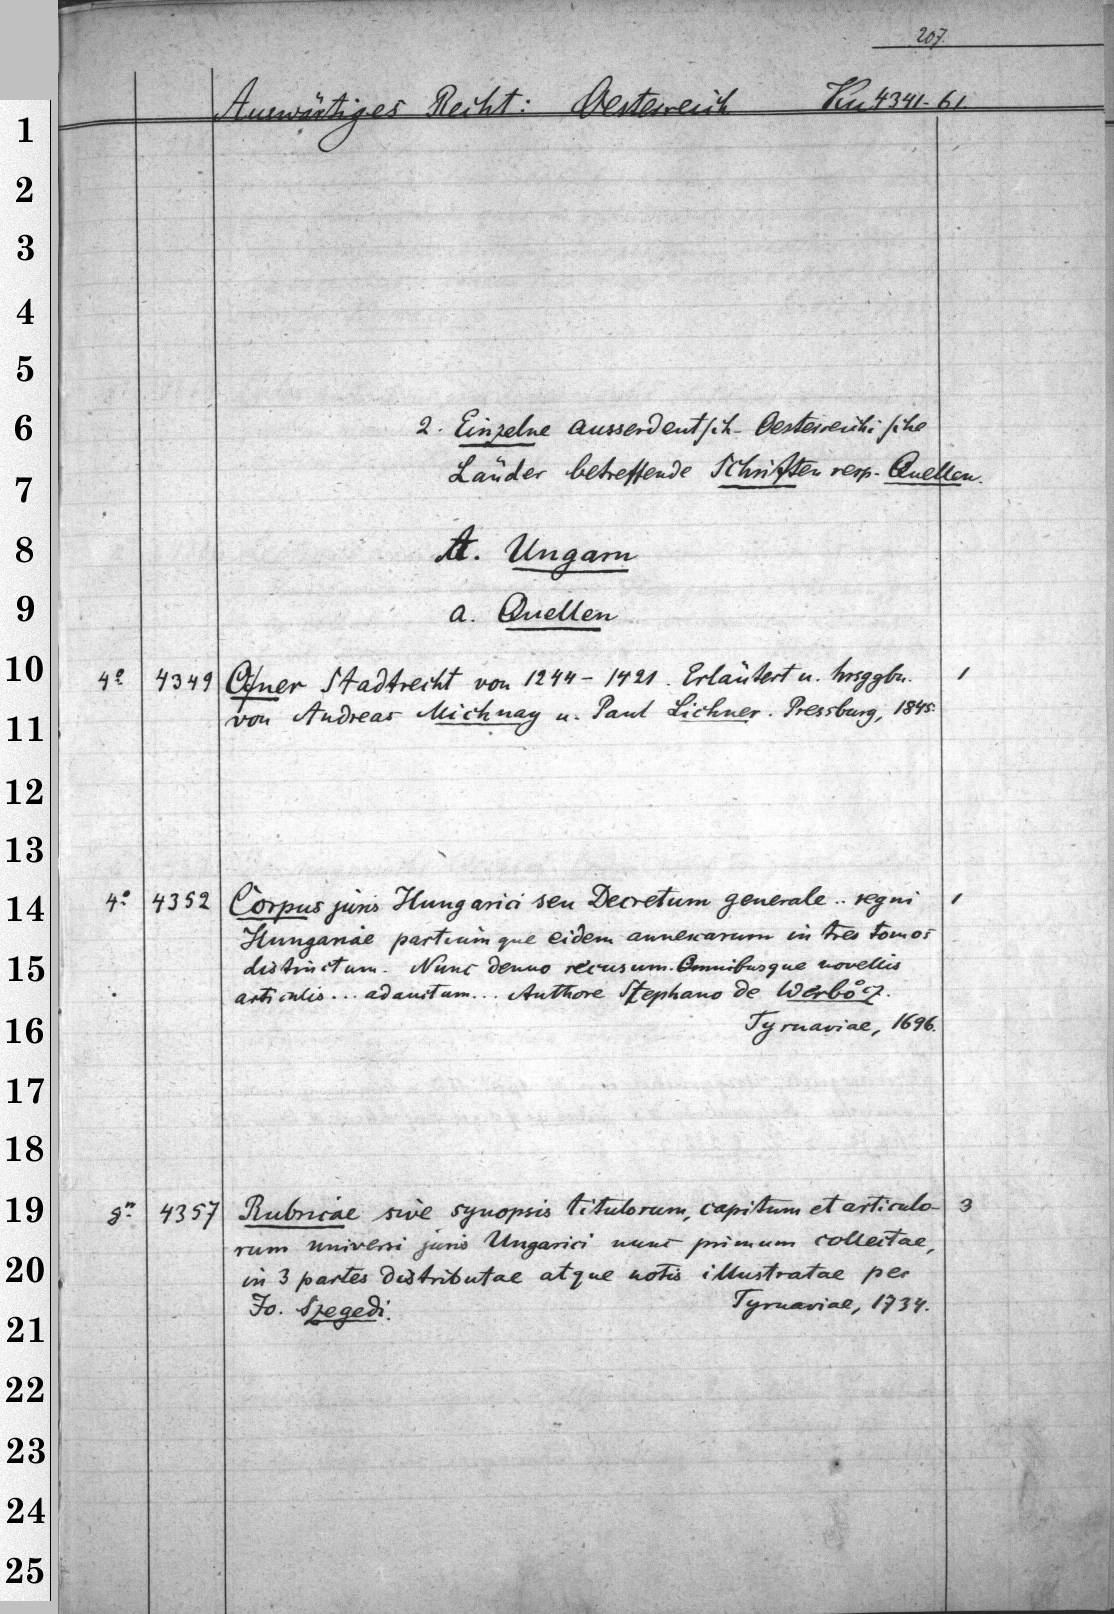 207.
Auswärtiges Recht: Oesterreich Ku 4341-61
1
2
3
4
5
6
2. Einzelne ausserdeutsch-Oesterreichische
Länder betreffende Schriften resp. Quellen.
7
8
A. Ungarn
9
a. Quellen
10
4° 4349 Ofner Stadtrecht von 1244-1421. Erläutert u. hrsggbn. 1
von Andreas Michnay u. Paul Lichner. Pressburg, 1845.
11
12
13
14
4° 4352 Corpus juris Hungarici seu Decretum generale .. regni 1
Hungariae partiumque eidem annexarum in tres tomos
15
distinctum. Nunc denuo recusum. Omnibusque novellis
articulis... adauctum... Authore Stephano de Werbőcz.
16
Tyrnaviae, 1696.
17
18
19
4357 Rubricae sive synopsis titulorum, capitum et articulo- 3
rum universi juris Ungarici nunc primum collectae,
20
in 3 partes distributae atque notis illustratae per
Jo. Szegedi. Tyrnaviae, 1734.
21
22
23
24
25